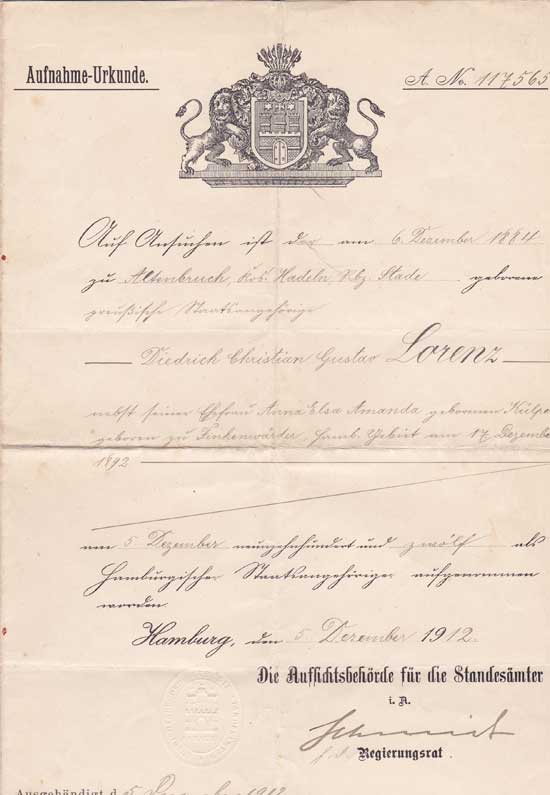 Aufnahme-Urkunde.
A. No. 117565
Auf Ansuchen ist der am 6. Dezember 1884
zu Altenbruch, Krs. Hadeln, Rbz. Stade geborene
preußische Staatsangehörige
Diedrich Christian Gustav Lorenz
nebst seiner Ehefrau Anna Elsa Amanda geborenen Külper
geboren zu Finkenwärder, Hamb. Gebiet am 17. Dezember
1892
am 5. Dezember neunzehnhundert und zwölf als
Hamburgischer Staatsangehöriger aufgenommen
worden
Hamburg, den 5. Dezember 1912.
Die Aufsichtsbehörde für die Standesämter
i. A.
Schmidt
Regierungsrat.
Ausgehändigt d. 5. Dezember 1912